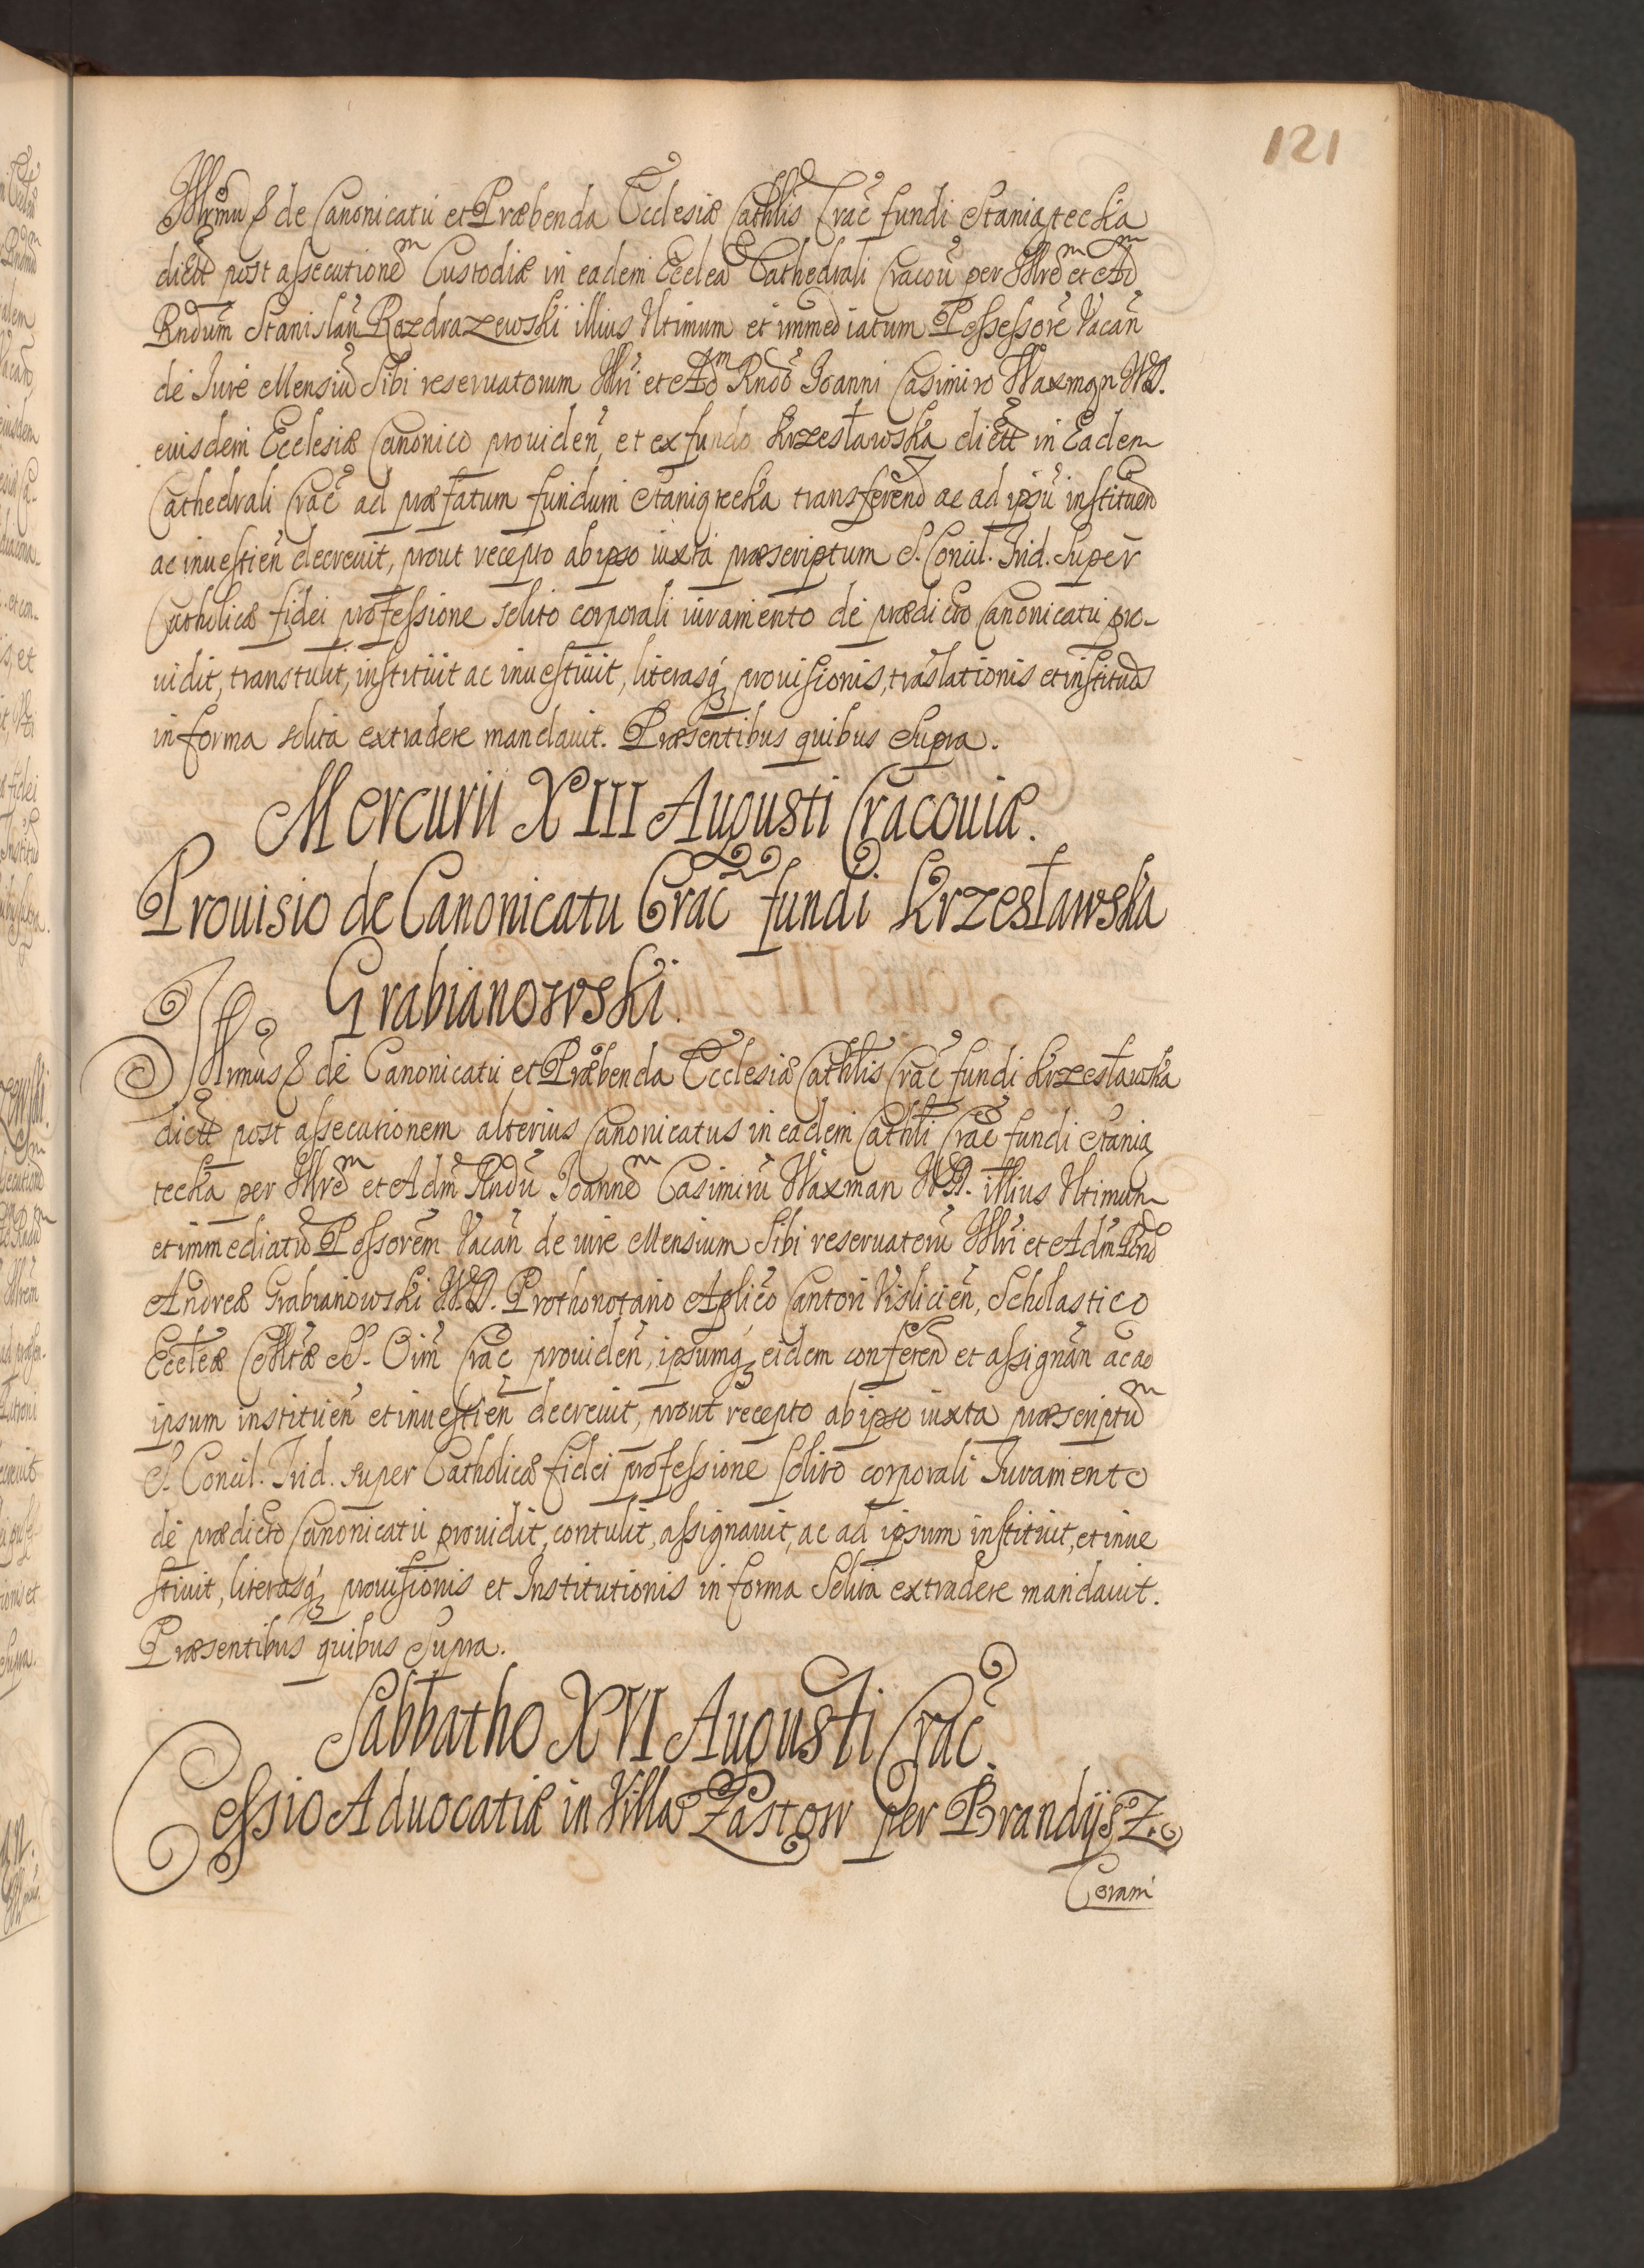 121
Illrmu & de Canonicatu et Præbenda Ecclesiæ Cathlis Crac̃ fundi Staniątecka
dictt post assecutionem Custodiæ in eadem Ecclea Cathedrali Cracoũ per Illrem et Adm
Rndum̃ Stanislañ Rozdrazewski illius Ultimum et immediatum Possessorẽ Vacañ
de Iure Mensiũ Sibi reseruatorum Illri et Adm Rndo Ioanni Casimiro Waxman W.D.
eiusdem Ecclesiæ Canonico prouideñ, et ex fundo Krzesławska dictt in Eadem
Cathedrali Crac̃ ad præfatum fundum Staniątecka transferend ac ad ipsũ instituend
ac inuestieñ decreuit, prout recepto ab ipso iuxta præscriptum S. Concil. Trid. Super
Catholicæ fidei professione solito corporali iuramento de prædicto Canonicatu pro-
uidit, transtulit, instituit ac inuestiuit, literasq; prouisionis, traslationis et institud
in forma solita extradere mandauit. Præsentibus quibus Supra.
Mercurii XIII Augusti Cracouiæ.
Prouisio de Canonicatu Crac̃ fundi Krzesławska
Grabianowski.
Illrmus & de Canonicatu et Præbenda Ecclesiæ Cathlis Crac̃ fundi Krzesławska
dictt post assecutionem alterius Canonicatus in eadem Cathli Crac̃ fundi Stanią
tecka per Illrem et Adm̃ Rndũ Ioannem Casimirũ Waxman W.D. illius Ultimum
et immediatũ Possorem̃ Vacañ de iure Mensium Sibi reseruatorũ Illri et Adm̃ Rnd
Andreæ Grabianowski W.D. Prothonotario Aplico Cantori Vislicieñ, Scholastico
Eccleæ Colltæ S.S. Oim̃ Crac̃ prouideñ, ipsumq; eidem conferend et assignañ ac ad
ipsum institueñ et inuestieñ decreuit, prout recepto ab ipso iuxta præscriptum
S. Concil. Trid. super Catholicæ fidei professione solito corporali Iuramento
de prædicto Canonicatu prouidit, contulit, assignauit, ac ad ipsum instituit, et inue
stiuit, literasq; prouisionis et Institutionis in forma Solita extradere mandauit.
Præsentibus quibus Supra.
Sabbatho XVI Augusti Crac̃.
Cessio Aduocatiæ in Villa Zastow per Brandÿsz.
Coram